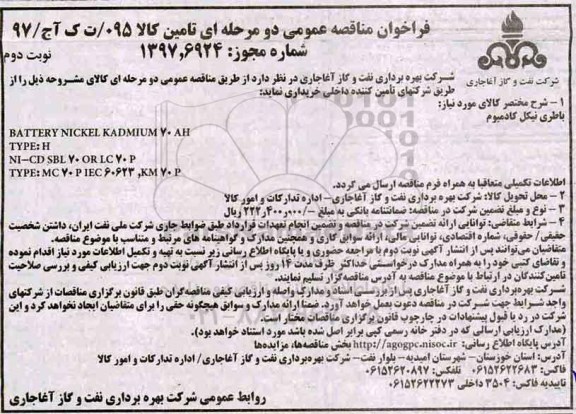 فراخوان مناقصه عمومی دو مرحله ای تامین کالا ۰۹۵/ت ک آج/۹۷
شماره مجوز: ۱۳۹۷,۶۹۲۴
نوبت دوم
شرکت نفت و گاز آغاجاری
شرکت بهره برداری نفت و گاز آغاجاری در نظر دارد از طریق مناقصه عمومی دو مرحله ای کالای مشروحه ذیل را از
طریق شرکتهای تأمین کننده داخلی خریداری نماید:
۱ - شرح مختصر کالای مورد نیاز:
باطری نیکل کادمیوم
BATTERY NICKEL KADMIUM ۷۰ AH
TYPE: H
NI-CD SBL ۷۰ OR LC ۷۰ P
TYPE: MC ۷۰ P IEC ۶۰۶۲۳ ,KM ۷۰ P
اطلاعات تکمیلی متعاقبا به همراه فرم مناقصه ارسال می گردد.
۲ - محل تحویل کالا: شرکت بهره برداری نفت و گاز آغاجاری - اداره تدارکات و امور کالا
۳ - نوع و مبلغ تضمین شرکت در مناقصه: ضمانتنامه بانکی به مبلغ –/۲۲۲,۴۰۰,۰۰۰ ریال
۴ - شرایط متقاضی: توانایی ارائه تضمین شرکت در مناقصه و تضمین انجام تعهدات قرارداد طبق ضوابط جاری شرکت ملی نفت ایران، داشتن شخصیت
حقیقی / حقوقی، شماره اقتصادی، توانایی مالی، ارائه سوابق کاری و همچنین مدارک و گواهینامه های مرتبط و متناسب با موضوع مناقصه.
متقاضیان می‌توانند پس از انتشار آگهی نوبت دوم با مراجعه حضوری و یا پایگاه اطلاع رسانی زیر نسبت به تهیه و تکمیل اطلاعات مورد نیاز اقدام نموده
و تقاضای کتبی خود را به همراه مدارک درخواستی حداکثر ظرف مدت ۱۴ روز پس از انتشار آگهی نوبت دوم جهت ارزیابی کیفی و بررسی صلاحیت
تامین‌کنندگان در ارتباط با موضوع مناقصه به آدرس مناقصه‌گزار تسلیم نمایند.
شرکت بهره‌برداری نفت و گاز آغاجاری پس از بررسی اسناد و مدارک واصله و ارزیابی کیفی مناقصه‌گران طبق قانون برگزاری مناقصات از شرکتهای
واجد شرایط جهت شرکت در مناقصه دعوت بعمل خواهد آورد. ضمنا ارائه مدارک و سوابق هیچگونه حقی را برای متقاضیان ایجاد نخواهد کرد و این
شرکت در رد یا قبول پیشنهادات در چارچوب قانون برگزاری مناقصات مختار است.
(مدارک ارزیابی ارسالی که در دفتر خانه رسمی کپی برابر اصل شده باشد مورد استناد خواهد بود).
آدرس پایگاه اطلاع رسانی: http://agogpc.nisoc.ir بخش مناقصه‌ها، مزایده‌ها
آدرس: استان خوزستان- شهرستان امیدیه- بلوار نفت- شرکت بهره‌برداری نفت و گاز آغاجاری/ اداره تدارکات و امور کالا
فاکس: ۰۶۱۵۲۶۲۲۶۸۳ تلفکس: ۰۶۱۵۲۶۲۰۸۹۷
تاییدیه فاکس: ۳۵۰۴ داخلی ۰۶۱۵۲۶۲۲۲۷۳
روابط عمومی شرکت بهره برداری نفت و گاز آغاجاری